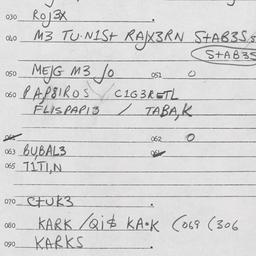 030 ROJ3X
040 M3 TU·N1St RAJX3RN StAB3S
StAB3S
050 MEJG M3 JO 051 O
060 PAP8IROS C1G3RETL
FLISPAPI3 / TABA,K
062 O
063 BUBAL3
065 T1T1,N
070 CtUK3
080 KARK /Qi$ KA·K (069 (306
090 KARKS